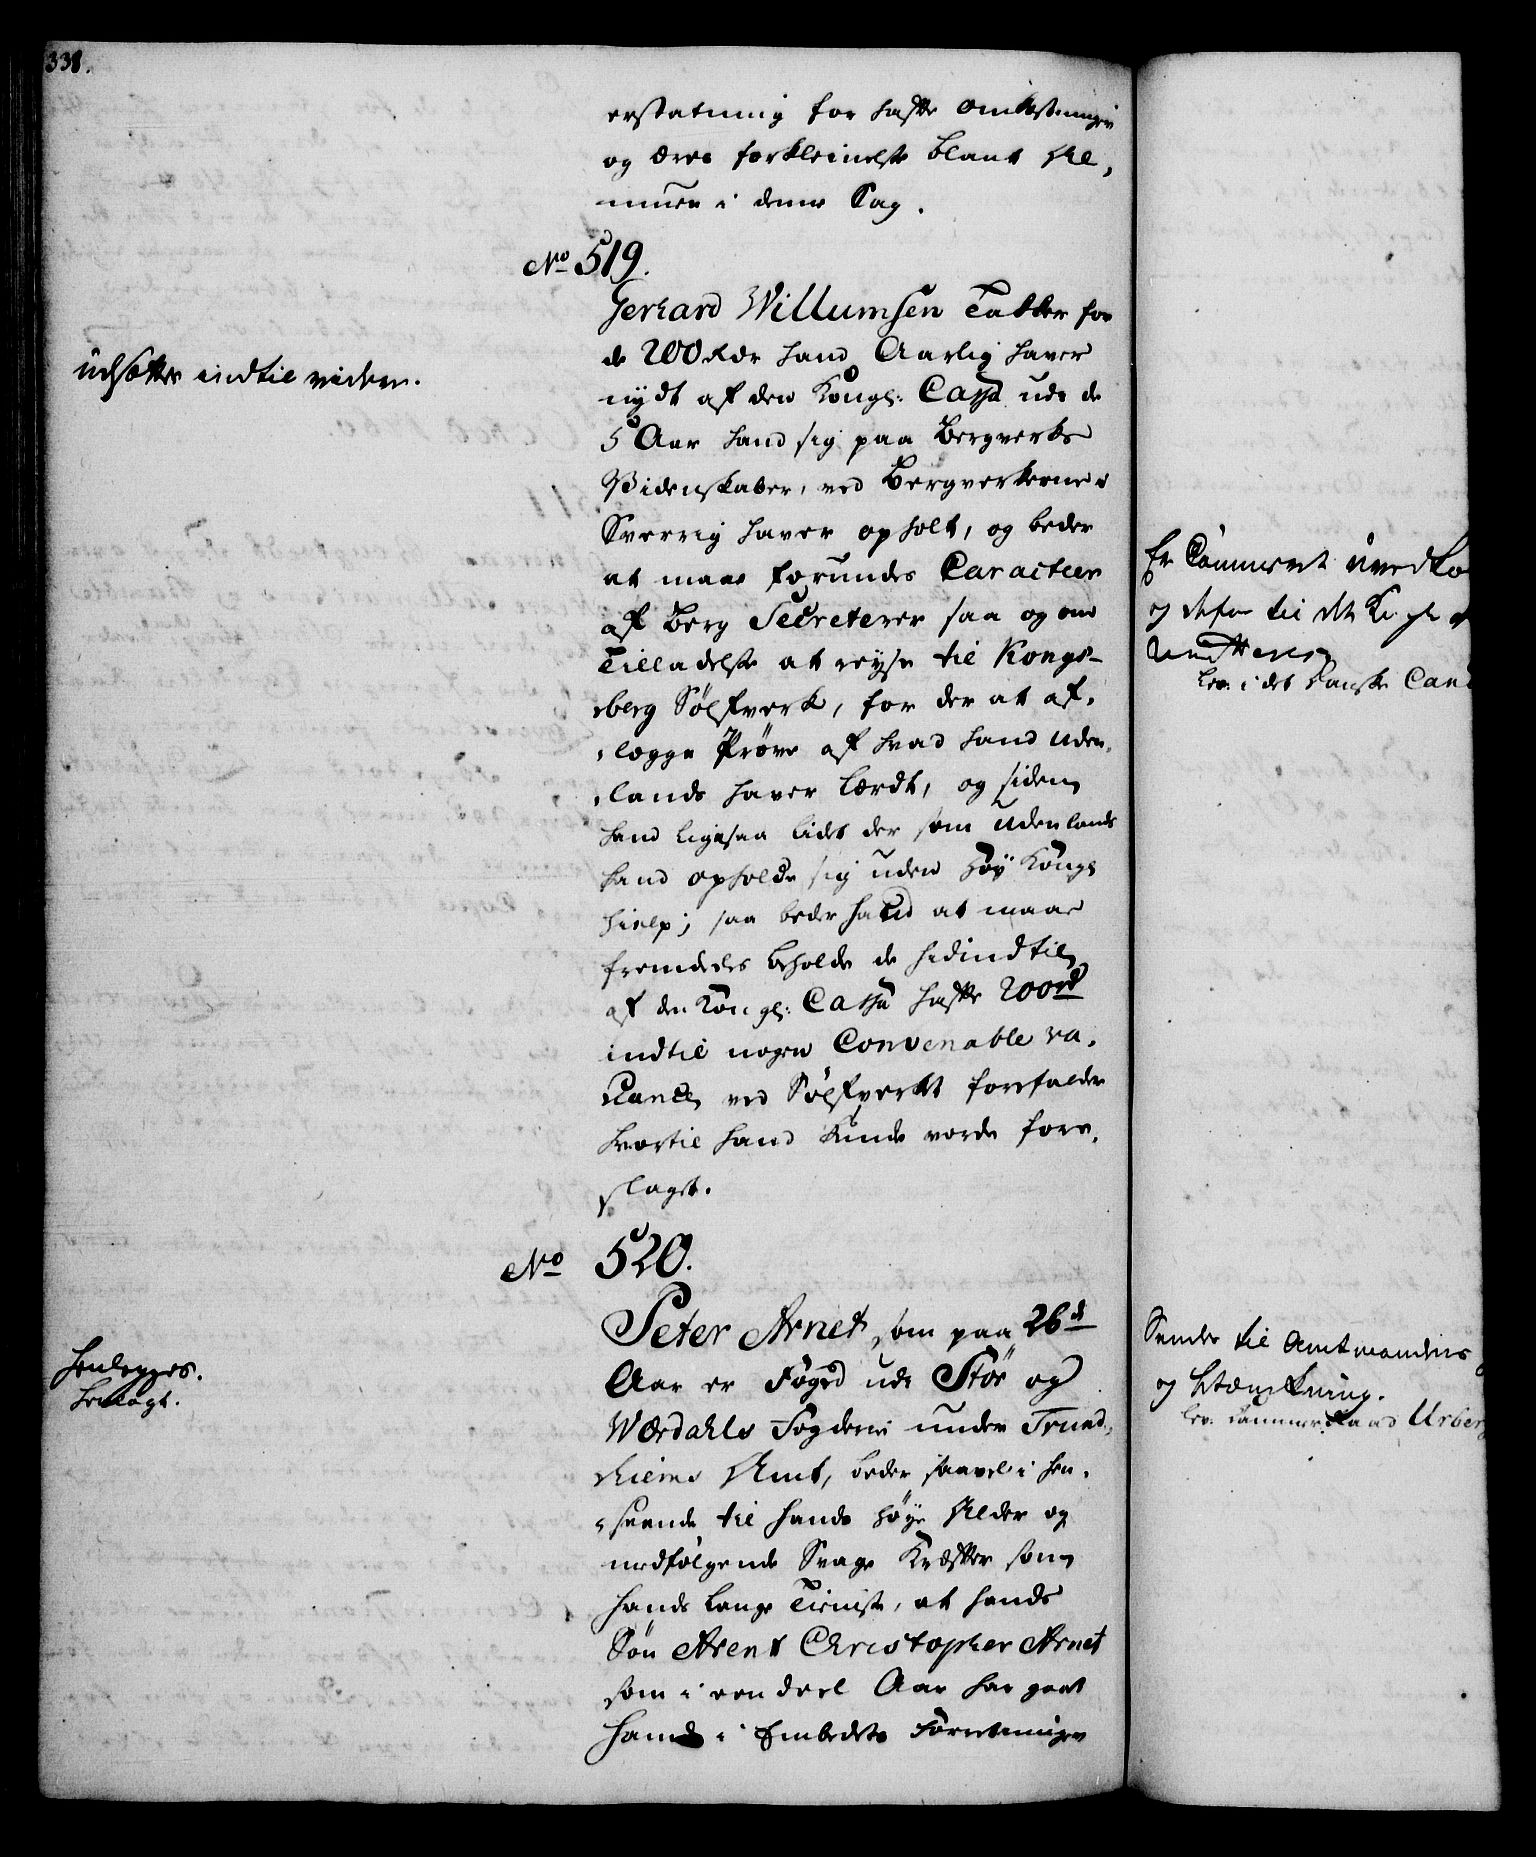 338.
erstatning for hafte Omkostninger
og æres forkleinelse blant Al-
muen i denne Sag.
No 519.
Gerhard Willumsen Takker for
de 200 Rdr hand Aarlig haver
nydt af den Kongl: Cassa udi de
5 Aar hand sig paa Bergverks
Videnskaber, ved Bergverkerne i
Sverrig haver opholt, og beder
at maae forundes Caracteer
af Berg Secreterer saa og om
Tilladelse at reyse til Kongs-
berg Sølfverk, for der at af-
legge Prøve af hvad hand Uden-
lands haver lærdt, og siden
hand ligesaa lidet der som Udenlands
kand opholde sig uden høy Kongl
hielp; saa beder hand at maae
fremdeles beholde de hidindtil
af den Kongl: Cassa hafte 200 rd
indtil nogen Convenable va-
cance ved Sølfverket forefalder
hvortil hand kunde vorde fore-
slaget.
udsættes indtil viidere.
No 520.
Peter Arnet som paa 26de
Aar er Foged udi Stør og
Værdahls Fogderie under Trund-
hiems Amt, beder saavel i hen-
seende til hands høye Alder og
medfølgende Svage Kræfter som
hands lange Tieniste, at hands
Søn Arent Christopher Arnet
som i een deel Aar har gaaet
hand i Embedets Forretninger
henlegges.
henlagt.
Er Communiceret
og til det
lev: i det Danske
Sendes til Amtmandens
og betænkning.
lev. Cammerraad